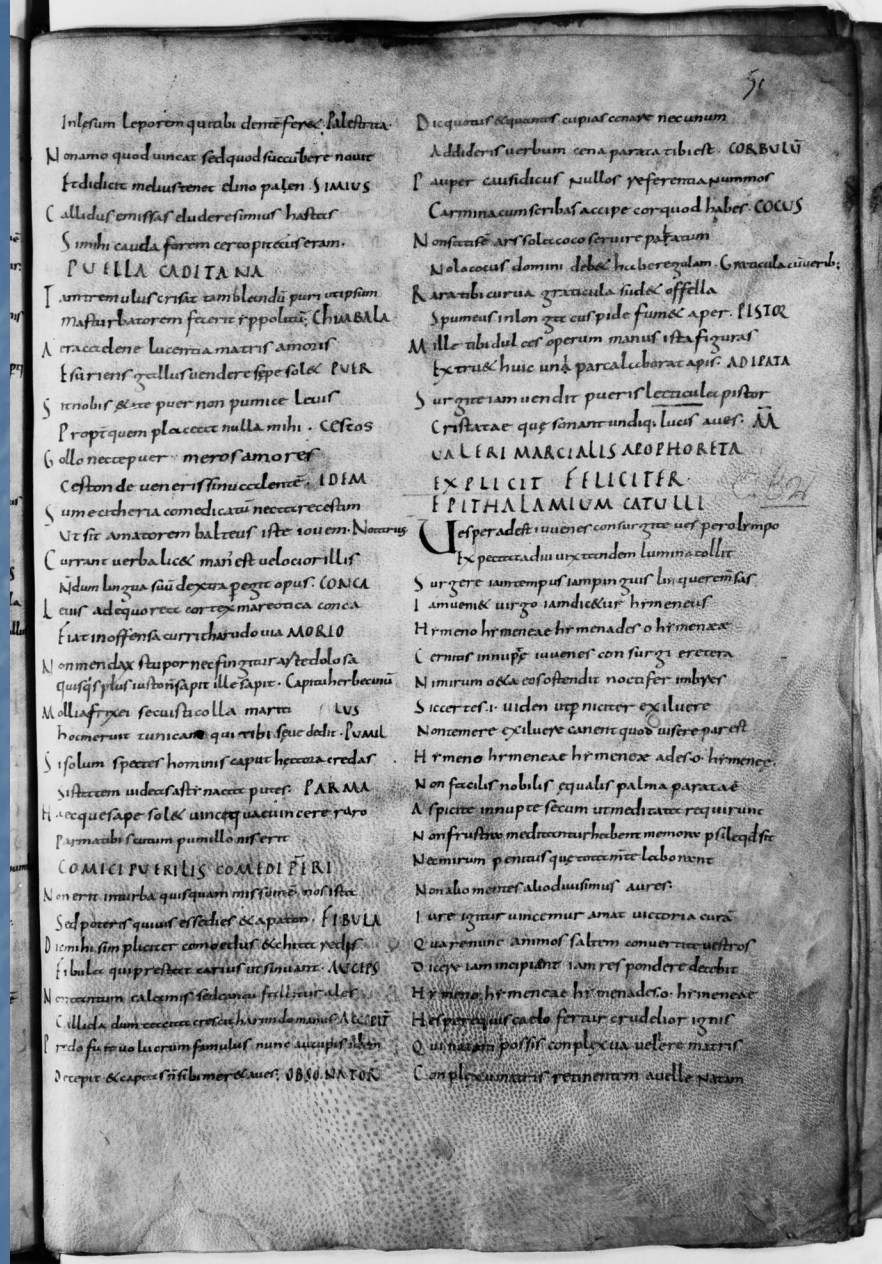 51
Inlęsum leporem qui tibi dentē fer&. Palestrita.
Nonamo quod vincat sed quod succūbere novit
Et didicit melius tenet elino palen. SIMIUS
Callidus emissas eludere simius hastas
Si mihi cauda forem cercopitecus eram.
PUELLA CADITANA
Tam tremulus crisat tam blandū puri ut ipsum
masturbatorem fecerit yppolitū; CHIMBALA
Aera celene lucentia matris amoris
Esuriens gallus vendere sępe sol& PUER
Sit nobis &te puer non pumice levis
Propt quem placeat nulla mihi. CESTOS
Collo necte puer meros amores
Ceston de veneris sinu calentē. IDEM
Sume citheria
Ut sit amatorem balteus iste iovem. Notarius
Currant verba lic& man' est velocior illis
N̄dum lingua suū dextra pegit opus. CONCA
Levis adequorea cortex mareotica conca
Fiat inoffensa currit harudo via MORIO
Non mendax stupor nec fingitur arte dolosa
quisq's plus iusto ñ sapit ille sapit. Capitul
Mollia frixei secuisti colla mariti LUS
hoc meruit tunicam qui tibi sępe dedit. PUMIL
Si solum spectes hominis caput hectora credas
Si stantem videas astinacta putes. PARMA
Haec que sape sol& vinci quae vincere raro
Parma tibi scutum pumilio niserit
COMICI PUERILIS COMEDI PIERI
Non erit in urba quisquam missūmē nos ista
Sed poteris quivis essedies & apaton. FIBULA
Dic mihi simpliciter comoedus & chita redis
Fibula qui prestet carius ut sinuant. AUCEPS
Non tantum calamis sed cantu fallitur ales
Callida dum tacita crescit harundo manus ACCEPIT
Predo fu te volucrum famulus nunc aucupis idem
Decepit & captas ñ sibi mer& aves. OBSONATOR
Dic quotus & quantis cupias cenare nec unum
Addideris verbum cena parata tibi est. CORBULŪ
Pauper causidicus nullos referentia nummos
Carmina cum scribas accipe cor quod habes. COCUS
Non satis ē ars sola coco servire palatum
Nolo cocus domini deb& habere gulam. Graticula cū verib;
Rara tibi curva graticula sud& offella
Spumeus in longa cuspide fum& aper. PISTOR
Mille tibi dulces operum manus ista figuras
Extru& huic una parca laborat apis. ADIPATA
Surgite iam vendit pueris lectacula pistor
Cristatae quę sonant undiq. lucis aves. ĀĀ
VALERI MARCIALIS APOPHORETA
EXPLICIT FELICITER.
EPITHALAMIUM CATULLI
Vesper adest iuvenes consurgite vesper olympo
Expectata diu vix tandem lumina tollit
Surgere iam tempus iam pinguis linquere m̄sas
Iam veni& virgo iam dic&ur hymeneus
Hymeno hymeneae hymenades o hymenaeae
Cernitis innupę iuvenes consurgi eretera
Nimirum o&aeos ostendit noctifer imbres
Sic certes.i. viden utp niciter exiluere
Non temere exiluere canent quod visere par est
Hymeno hymeneae hymeneae ades.o. hymenee.
Non facilis nobilis ęqualis palma paratae
Aspicite innupte secum ut meditata requirunt
Non frustra meditantur habent memore psile qd sit
Nec mirum penitus que tota m̄te laborant
Non alio mentes alio divisimus aures.
Iure igitur vincemur amat victoria curā
Quare nunc animos saltem convertite vestros
Dicere iam incipient iam respondere decebit
Hymeno hymeneae hymenades.o. hymeneae
Hespere qui caelo fertur crudelior ignis
Qui natam possis conplexu avelere matris
Conplexu matris retinentem avelle natam